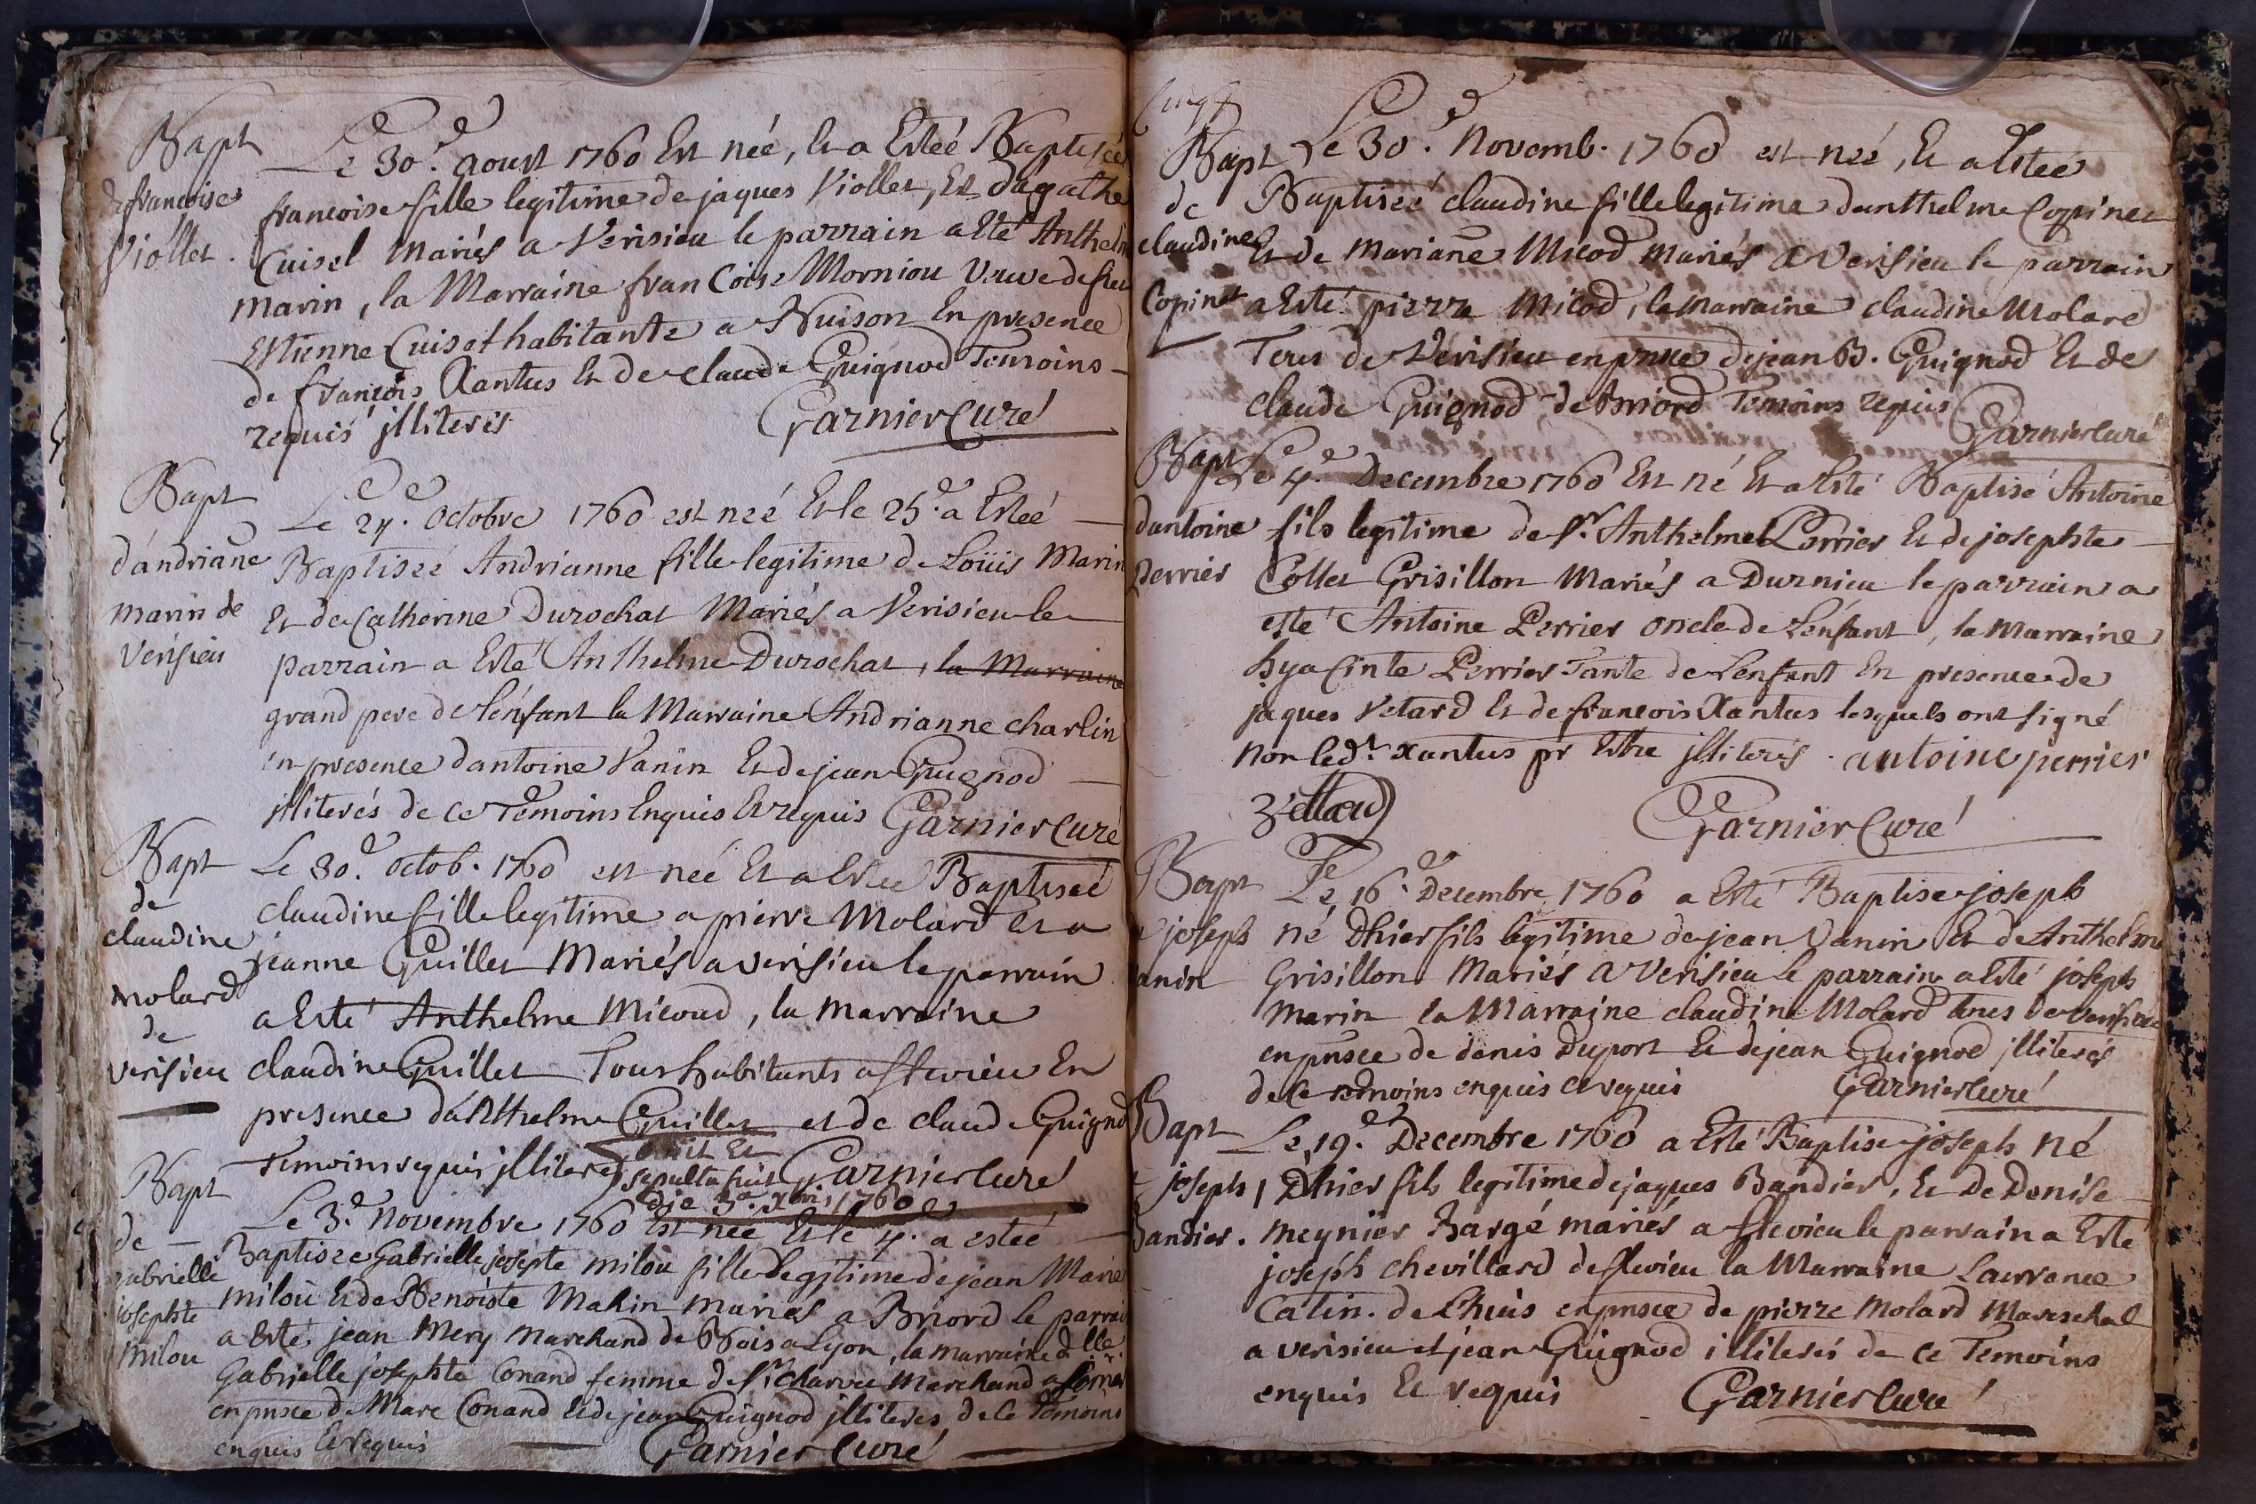 Bapt
de francoise
Viollet.
Le 30.e aoust 1760 Est néé, Et a Estéé Baptiséé
francoise fille legitime de jaques Viollet, Et d'agathe
Cuisel Mariés a Verisieu le parrain a Eté Anthelm
Marin, la Marraine francoise Morniou Veuve de feu
Estienne Cuiset habitante a Nuison En presence
de françois Xantus Et de claude Guignod Temoins
requis jlliterés
Garnier Curé
Bapt
d'andriane
marin de
Verisieu
Le 24.e Octobre 1760 est néé Et le 25.e a Estéé
Baptiséé Andrianne fille legitime de Loüis Marin
Et de Catherine Durochat Mariés a Verisieu le
parrain a Esté Anthelme Durochat, la Marraine
grand pere de l'énfant la Marraine Andrianne charlin
en presence dantoine Vanin Et de jean Guignod
jlliterés de ce Temoins Enquis Et requis Garnier Curé
Bapt
de
claudine
Molard
de
verisieu
Le 30.e octob. 1760 est néé Et a Estéé Baptiséé
claudine fille legitime a pierre Molard et a
jeanne Guillet Mariés a verisieu le parrain
a Esté Anthelme Micoud, la marraine
claudine Guillet Tous habitants a flevieu En
presence d'anthelme Guillet et de claude Guignod
Temoins requis jlliterés Garnier Curé
obiit Et
sepulta fuit
die 3.a xbris 1760
Bapt
de
gabrielle
josephte
milou
Le 3.e Novembre 1760 Est néé Et le 4.e a estéé
Baptisee Gabrielle josepte milou fille legitime de jean Marie
milou Et de Benoiste Mahin mariés a Briord le parrain
a Esté jean Mery Marchand de Bois a Lyon, la marraine dlle
Gabrielle josephte Conand femme de Sr. charvu Marchand a
en pnsce de Marc Conand Et de jean Guignod jlliteres de ce Temoins
enquis Et requis
Garnier Curé
Bapt
de
claudine
Copinet
Le 30.e Novemb. 1760 est néé, Et a Estéé
Baptiséé claudine fille legitime danthelme Copinet
Et de Mariane Micod Mariés a Verisieu le parrain
a Esté pierre Micod, la marraine claudine Molard
Tous de Verisieu en pnsce de jean B. Guignod Et de
claude Guignod de briord Temoins requis
Garnier Curé
Bapt
dantoine
perrier
Le 4.e Decembre 1760 Est né Et a Esté Baptisé Antoine
fils legitime de Sr. Anthelme Perrier Et de josephte
Collet Grisillon Mariés a Durnieu le parrain a
esté Antoine Perrier oncle de L'énfant, la Marraine
hyacinte Perrier Tante de L'énfant En presence de
jaques Vetard Et de francois Xantus lesquels ont signé
Non led.t xantus pr Estre jlliterés. antoine perrier
Garnier Curé
Bapt
joseph
anin
Le 16.e Decembre 1760 a Esté Baptise joseph
né Dhier fils legitime de jean Vanin Et de Anthelme
Grisillon Mariés a Verisieu le parrain a Esté joseph
Marin la Marraine claudine Molard tous de verisieu
en pnsce de denis Duport Et de jean Guignod jlliterés
de ce temoins enquis et requis
Garnier Curé
Bapt
joseph
Bandier.
Le 19.e Decembre 1760 a Esté Baptise joseph né
Dhier fils legitime de jaques Bandier, Et De Denise
Meynier Bargé mariés a flevieu le parrain a Esté
joseph chevillard de flevieu la Marraine Laurance
Catin de Lhuis en pnsce de pierre Molard Mareschal
a verisieu et jéan Guignod illiterés de ce Temoins
enquis Et requis
Garnier Curé